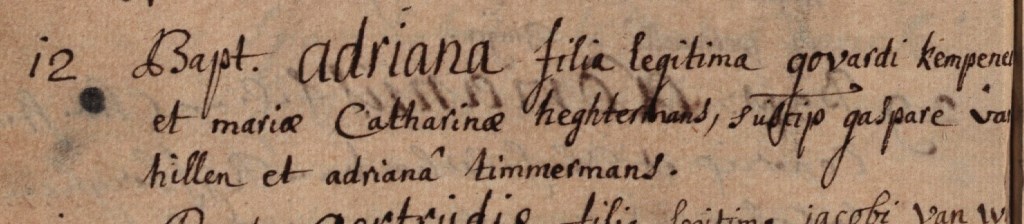 12 Bapt. adriana filia legitima govardi kempene
et mariæ Catharinæ heghtermans, suscip gaspare van
hillen et adrianâ timmermans.
gertrudis filia legitima jacobi van